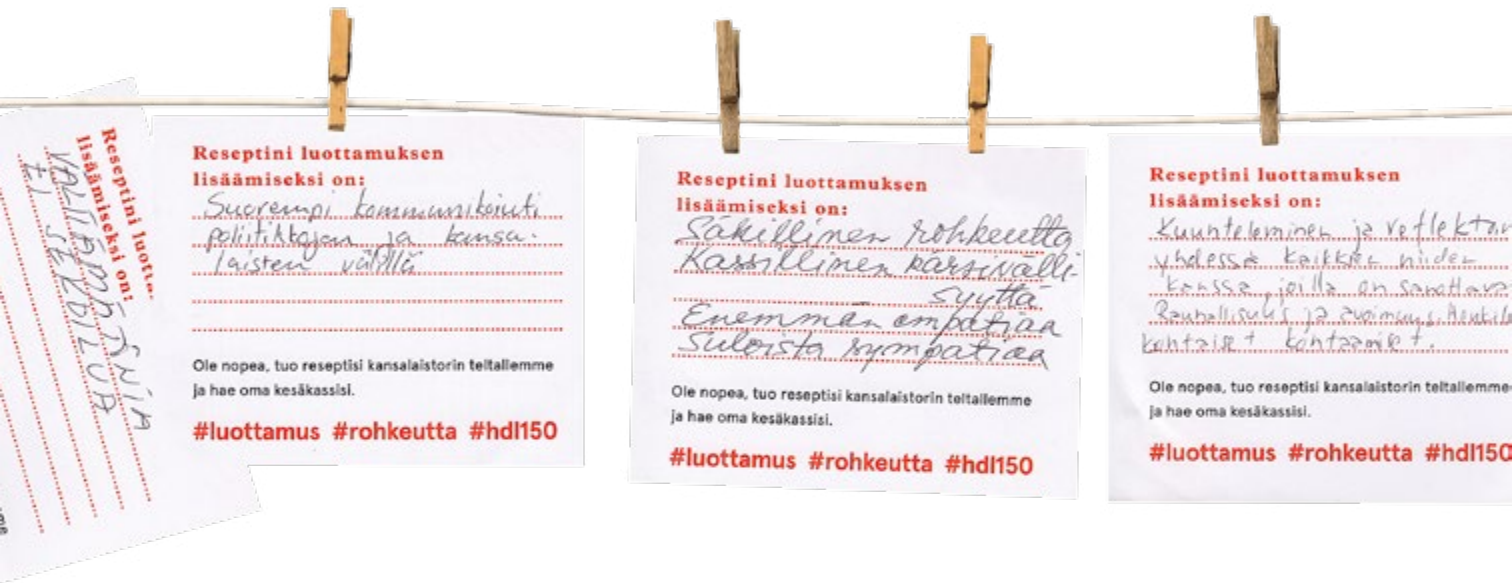 Reseptini luotta
lisäämiseksi on:
VÄLITÄMÄTÖNIÄ
Reseptini luottamuksen
lisäämiseksi on:
Suorempi kommunikointi
poliitikkojen ja kansa-
laisten välillä
Ole nopea, tuo reseptisi kansalaistorin teltallemme
ja hae oma kesäkassisi.
#luottamus #rohkeutta #hdl150
Reseptini luottamuksen
lisäämiseksi on:
Säkillinen rohkeutta
Kassillinen kärsivälli-
syyttä
Enemmän empatiaa
Suloista sympatiaa
Ole nopea, tuo reseptisi kansalaistorin teltallemme
ja hae oma kesäkassisi.
#luottamus #rohkeutta #hdl150
Reseptini luottamuksen
lisäämiseksi on:
Kuunteleminen ja reflektoin
yhdessä kaikkien niiden
kanssa, joilla on sanottava
Rauhallisuus ja avoimuus. Henkilö
kohtaiset kohtaamiset.
Ole nopea, tuo reseptisi kansalaistorin teltallemme
ja hae oma kesäkassisi.
#luottamus #rohkeutta #hdl150